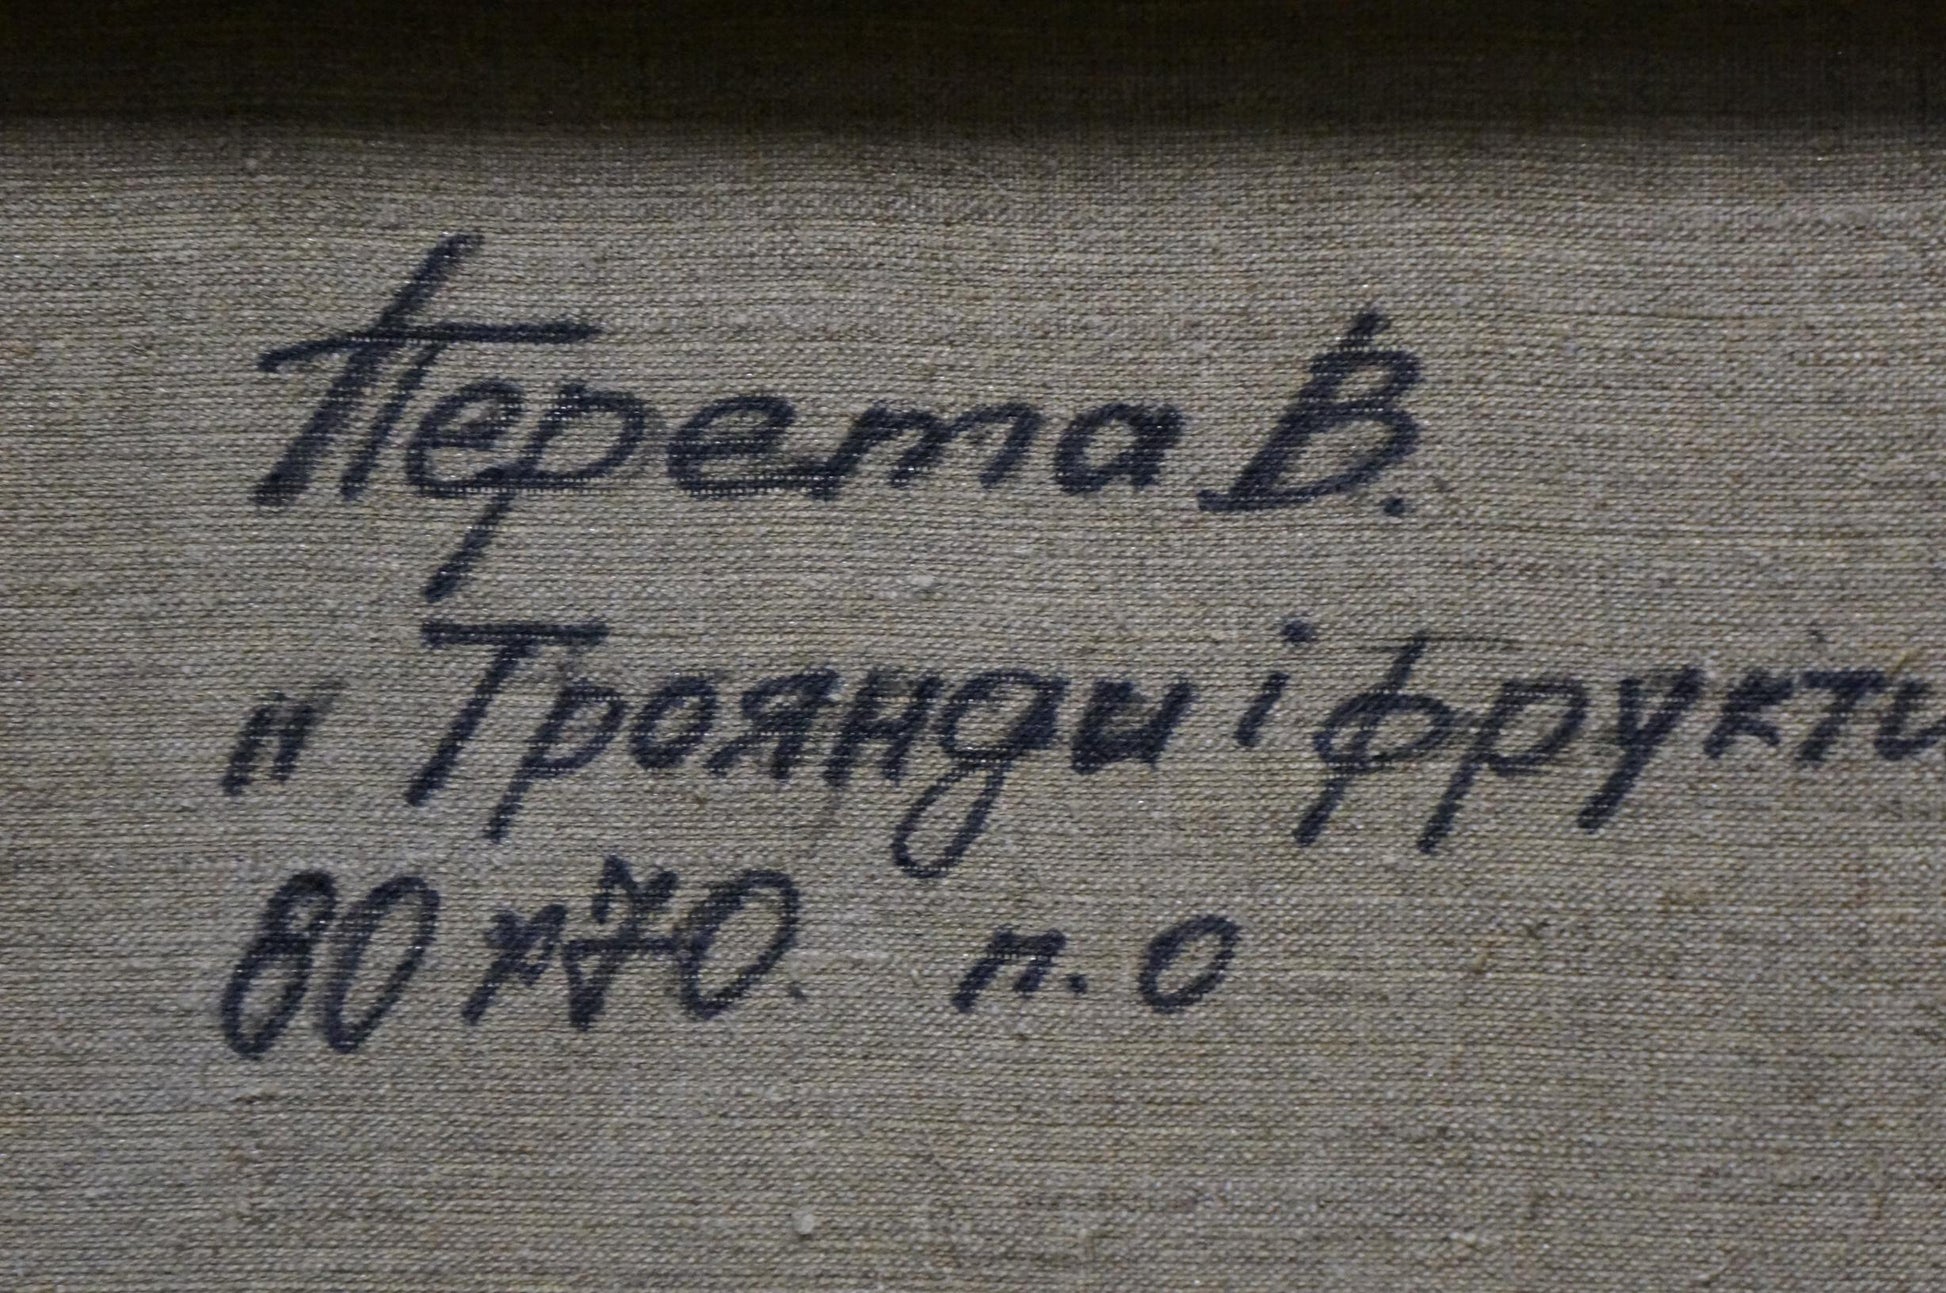 Перета В.
" Троянди і фрукти
80 х 70. п. О